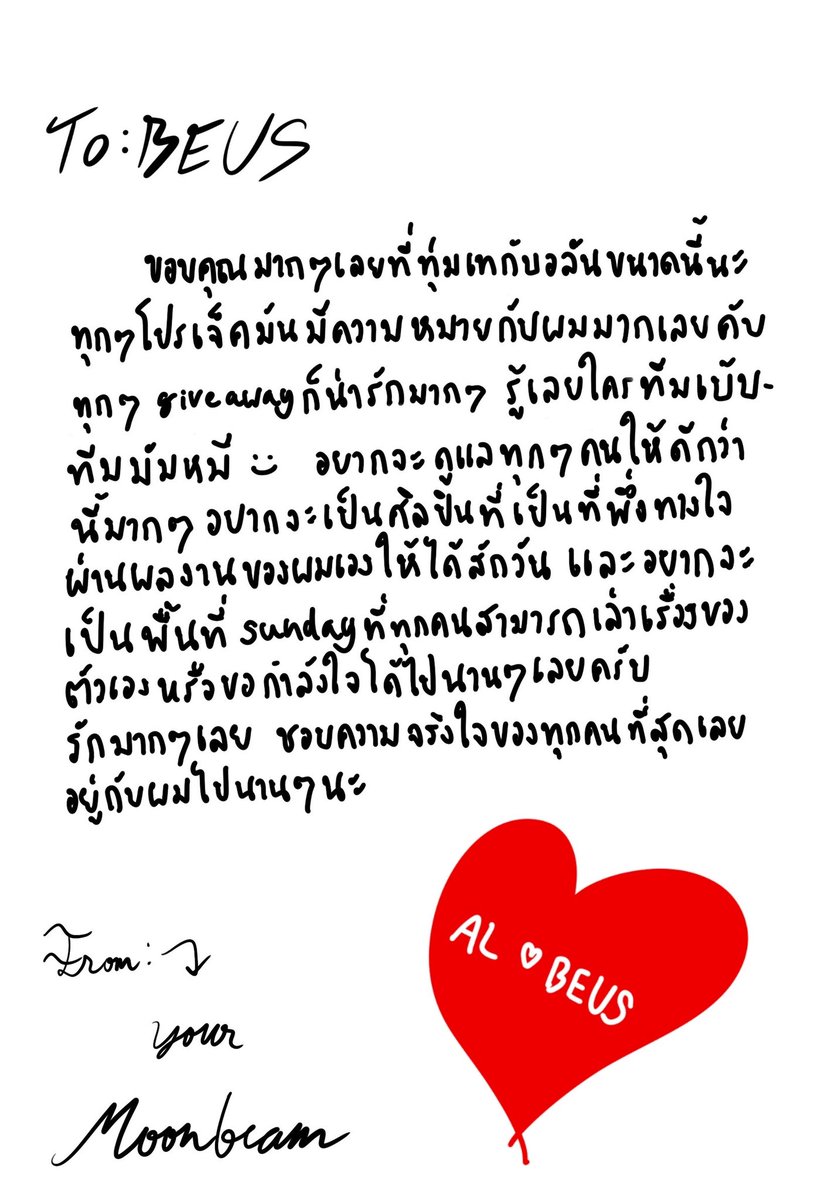 To: BEUS
ขอบคุณมากๆเลยที่ทุ่มเทกับอลันขนาดนี้นะ
ทุกๆโปรเจ็คมันมีความหมายกับผมมากเลยคับ
ทุกๆ giveaway ก็น่ารักมากๆ รู้เลยใครทีมเบ้บ-
ทีมมัมหมี อยากจะดูแลทุกๆคนให้ดีกว่า
นี้มากๆ อยากจะเป็นศิลปินที่เป็นที่พึ่งทางใจ
ผ่านผลงานของผมเองให้ได้สักวัน และอยากจะ
เป็นพื้นที่ sunday ที่ทุกคนสามารถเล่าเรื่องของ
ตัวเองหรือขอกำลังใจได้ไปนานๆเลยครับ
รักมากๆเลย ชอบความจริงใจของทุกคนที่สุดเลย
อยู่กับผมไปนานๆนะ
AL ♡ BEUS
From:
your
Moonbeam